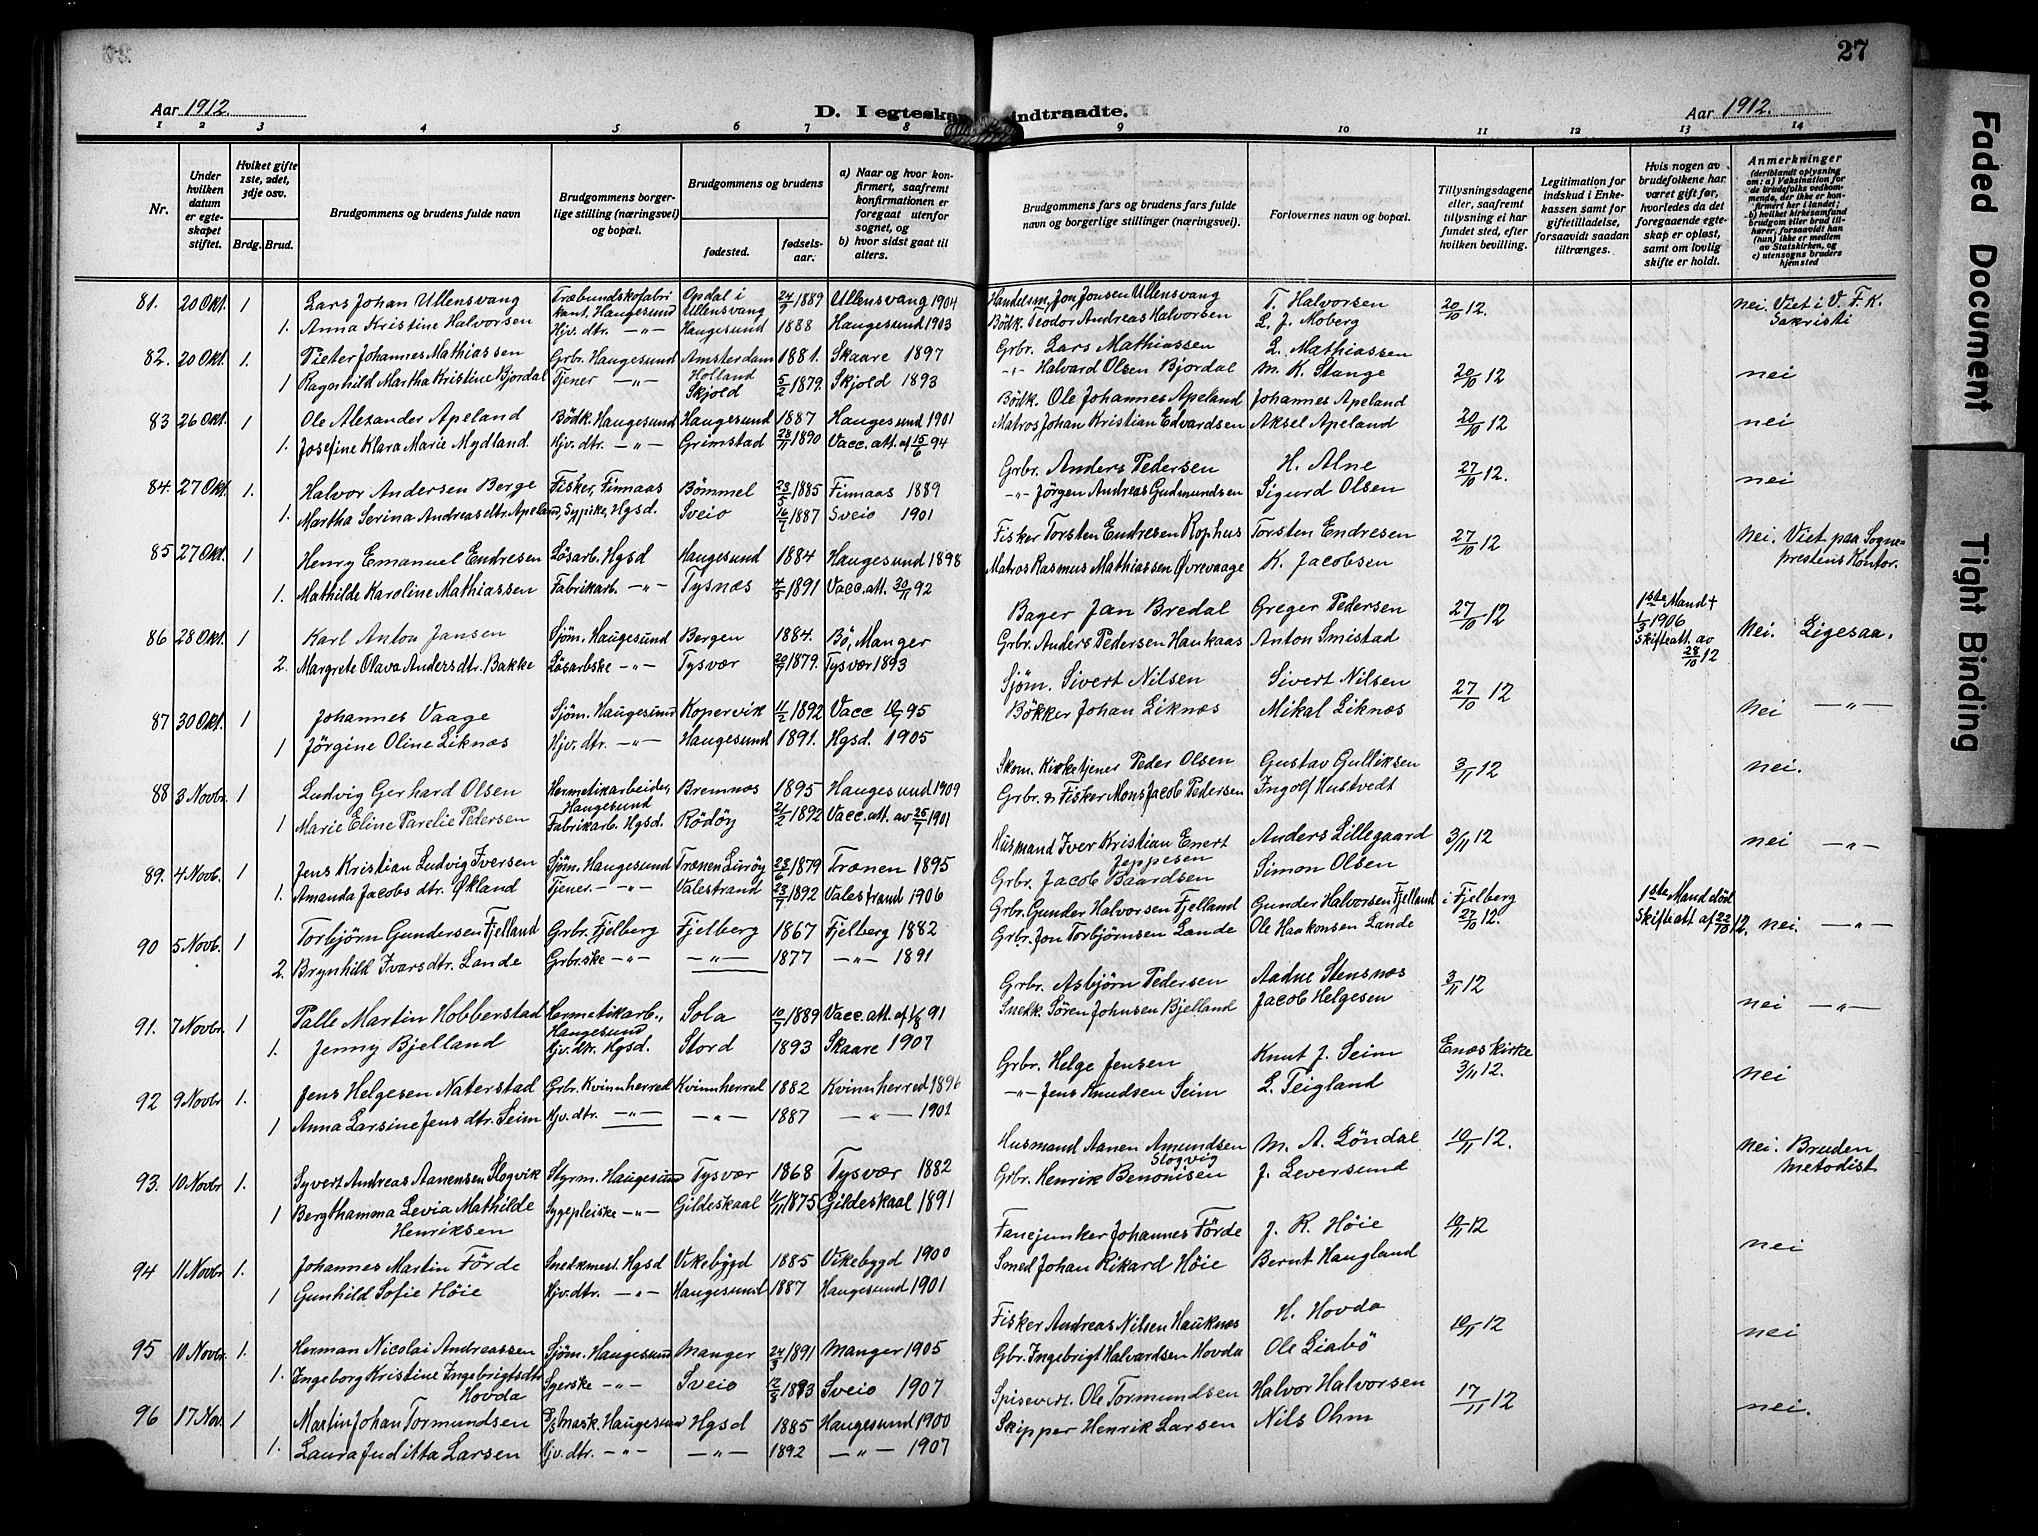 27
Aar 1912.
D. I egteskap indtraadte.
Aar 1912.
1 2 3 4 5 6 7 8 9 10 11 12 13 14
Nr.
Under hvilken datum er egteskapet stiftet.
Hvilket gifte 1ste, 2det, 3dje osv.
Brdg. Brud.
Brudgommens og brudens fulde navn
Brudgommens borgerlige stilling (næringsvei) og bopæl.
Brudgommens og brudens
fødested. fødselsaar.
a) Naar og hvor konfirmert, saafremt konfirmationen er foregaat utenfor sognet, og
b) hvor sidst gaat til alters.
Brudgommens fars og brudens fars fulde navn og borgerlige stillinger (næringsvei).
Forlovernes navn og bopæl.
Tillysningsdagene eller, saafremt tillysning ei har fundet sted, efter hvilken bevilling.
Legitimation for indskud i Enkekassen samt for giftetilladelse, forsaavidt saadan tiltrænges.
Hvis nogen av brudefolkene har været gift før, hvorledes da det foregaaende egteskap er opløst, samt om lovlig skifte er holdt.
Anmerkninger (deriblandt oplysning om: a) Vaksination for de brudefolks vedkommende, der ikke er konfirmert her i landet; b) hvilket kirkesamfund brudgom eller brud tilhører, forsaavidt han (hun) ikke er medlem av Statskirken, og c) utensogns bruders hjemsted
81. 20 Okt. 1 Lars Johan Ullensvang Træbundskofabrikant, Haugesund Opdal i Ullensvang 24/7 1889 Ullensvang 1904 Handelsm. Jon Jonsen Ullensvang T. Halvorsen 20/10 12. nei. Viet i V. F. K. Sakristi
1. Anna Kristine Halvorsen Hjv. dtr. —"— Haugesund 1888 Haugesund 1903 Bödk. Teodor Andreas Halvorsen L. J. Moberg
82. 20 Okt. 1. Pieter Johannes Mathiassen Grbr. Haugesund Amsterdam Holland 1881. Skaare 1897 Grbr. Lars Mathiassen L. Mathiassen 20/10 12 nei
1 Ragnhild Martha Kristine Bjordal Tjener —"— Skjold 5/2 1879. Skjold 1893 —"— Halvard Olsen Bjordal M. K. Stange
83 26 Okt. 1 Ole Alexander Apeland Bödk. Haugesund Haugesund 1887 Haugesund 1901 Bödk. Ole Johannes Apeland Johannes Apeland 20/10 12 nei
1. Josefine Klara Marie Mydland Hjv. dtr. —"— Grimstad 28/11 1890 Vacc. att. af 15/6 94 Matros Johan Kristian Edvardsen Aksel Apeland
84. 27 Okt. 1. Halvor Andersen Berge Fisker, Finnaas Bömmel 23/5 1885 Finnaas 1889 Grbr. Anders Pedersen H. Alne 27/10 12. nei
1. Martha Serina Andreasdtr. Apeland, Sypike, Hgsd. Sveio 1887 Sveio 1901 —"— Jörgen Andreas Gudmundsen Sigurd Olsen
85 27 Okt. 1 Henry Emanuel Endresen Løsarb. Hgsd Haugesund 1884 Haugesund 1898 Fisker Torsten Endresen Rophus Torsten Endresen 27/10 12 Nei. Viet paa Sogneprestens Kontor.
1. Mathilde Karoline Mathiassen Fabrikarb. —"— Tysnæs 4/5 1891 Vacc. att. 30/11 92 Matros Rasmus Mathiassen Øvrevaage K. Jacobsen
86 28 Okt. 1 Karl Anton Jansen Sjöm. Haugesund Bergen 1884. Bö, Manger Bager Jan Bredal Greger Pedersen 27/10 12 1ste Mand + 1/3 1906 Skifteatt. av 28/10 12 Nei. Ligesaa.
2. Margrete Olava Andersdtr. Bakke Løsarbske —"— Tysvær 20/7 1879. Tysvær 1893 Grbr. Anders Pedersen Haukaas Anton Smistad
87 30 Okt. 1 Johannes Vaage Sjöm. Haugesund Kopervik 11/2 1892 Vacc 95 Sjöm. Sivert Nilsen Sivert Nilsen 27/10 12 nei —"—
1 Jörgine Oline Liknæs Hjv. dtr. —"— Haugesund 1891. Hgsd. 1905 Bökker Johan Liknæs Mikal Liknæs
88 3 Novbr. 1 Ludvig Gerhard Olsen Hermetikarbeider, Haugesund Bremnæs 1895 Haugesund 1909 Skom. Kirketjener Peder Olsen Gustav Gulliksen 3/11 12 nei.
1 Marie Eline Parelie Pedersen Fabrikarb. Hgsd. Rödöy 21/2 1892 Vacc. att. av 25/7 1901 Grbr. & Fisker Mons Jacob Pedersen Ingolf Hustvedt
89. 4 Novb. 1 Jens Kristian Ludvig Iversen Sjöm. Haugesund Trænen Luröy 23/6 1879 Trænen 1895 Husmand Iver Kristian Enert Jeppesen Anders Lillegaard 3/11 12 nei —"—
1. Amanda Jacobs dtr. Økland Tjener. —"— Valestrand 23/7 1892 Valestrand 1906 Grbr. Jacob Baardsen Simon Olsen
90 5 Novb. 1 Torbjörn Gundersen Fjelland Grbr. Fjelberg Fjelberg 1867 Fjelberg 1882 Grbr. Gunder Halvorsen Fjelland Gunder Halvorsen Fjelland i Fjelberg 27/10 12. 1ste Mand död Skifteatt af 22/10 12. nei —"—
2. Brynhild Ivarsdtr. Lande Grbr.ske —"— —"— 1877 —"— 1891 Grbr. Jon Torbjörnsen Lande Ole Haakonsen Lande
91. 7 Novbr. 1 Palle Martin Hobberstad Hermetikarb., Haugesund Sola 10/7 1889 Vacc. att. af 1/8 91 Grbr. Asbjörn Pedersen Aadne Stensnæs 3/11 12 nei —"—
1. Jenny Bjelland Hjv. dtr. Hgsd. Stord 1893 Skaare 1907 Snedk. Sören Johnsen Bjelland Jacob Helgesen
92 9 Novbr 1. Jens Helgesen Naterstad Grbr. Kvinnherred Kvinnherred 1882 Kvinnherred 1896 Grbr. Helge Jensen Knut J. Seim Enæs kirke 3/11 12. nei
1 Anna Larsine Jens dtr. Seim Hjv. dtr. —"— —"— 1887 —"— 1901 —"— Jens Knudsen Seim L. Teigland
93. 10 Novbr 1. Syvert Andreas Aanensen Slogvik Styrm. Haugesund Tysvær 1868 Tysvær 1882 Husmand Aanen Amundsen Slogvig M. A. Löndal 10/11 12. nei. Bruden metodist
1 Bergthamma Levia Mathilde Henriksen Sygepleiske —"— Gildeskaal 1875 Gildeskaal 1891 Grbr. Henrik Benonisen J. Leversund
94 11 Novbr 1. Johannes Martin Förde Snedkmest. Hgsd Vikebygd 1885 Vikebygd 1900 Fanejunker Johannes Förde J. R. Höie 10/11 12 nei
1 Gunhild Sofie Höie Hjv. dtr. —"— Haugesund 1887 Haugesund 1901 Smed Johan Rikard Höie Bernt Haugland
95 10 Novbr. 1. Herman Nicolai Andreassen Sjöm. Haugesund Manger 24/3 1891 Manger 1905 Fisker Andreas Nilsen Hauknes H. Hovda 10/11 12 nei
1. Ingeborg Kristine Ingebrigtsdtr Hovda Syerske —"— Sveio 12/8 1893 Sveio 1907 Gbr. Ingebrigt Halvardsen Hovda Ole Liabö
96 17 Nov. 1 Martin Johan Tormundsen Mask. Haugesund Hgsd 1885 Haugesund 1900 Spisevert. Ole Tormundsen Halvor Halvorsen 17/11 12 nei.
1. Laura Juditta Larsen Hjv. dtr. —"— —"— 1892 —"— 1907 Skipper Henrik Larsen Nils Ohm
Faded Document
Tight Binding